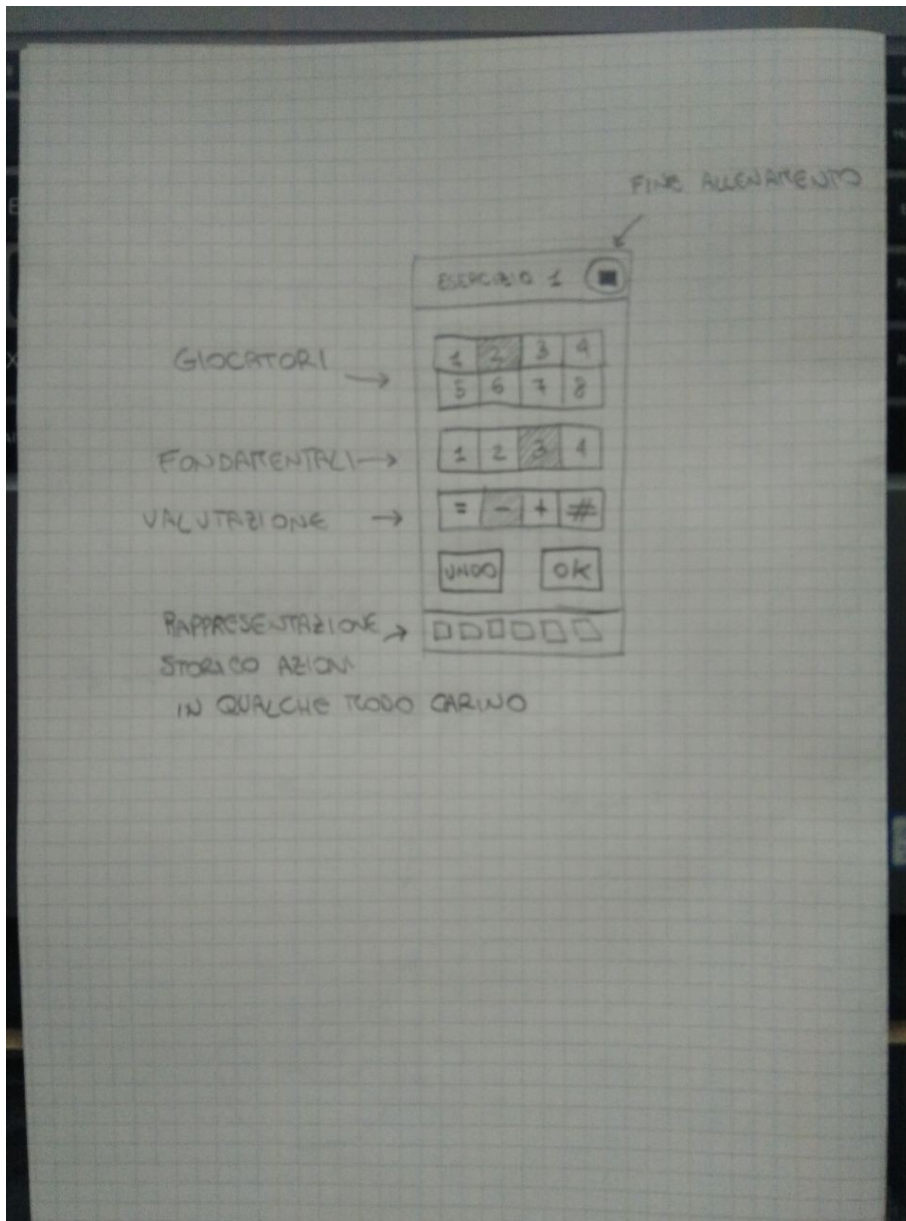 FINE ALLENAMENTO
ESERCIZIO 1
GIOCATORI
1 2 3 4
5 6 7 8
FONDAMENTALI
1 2 3 4
VALUTAZIONE
= - + #
UNDO OK
RAPPRESENTAZIONE
STORICO AZIONI
IN QUALCHE MODO CARINO